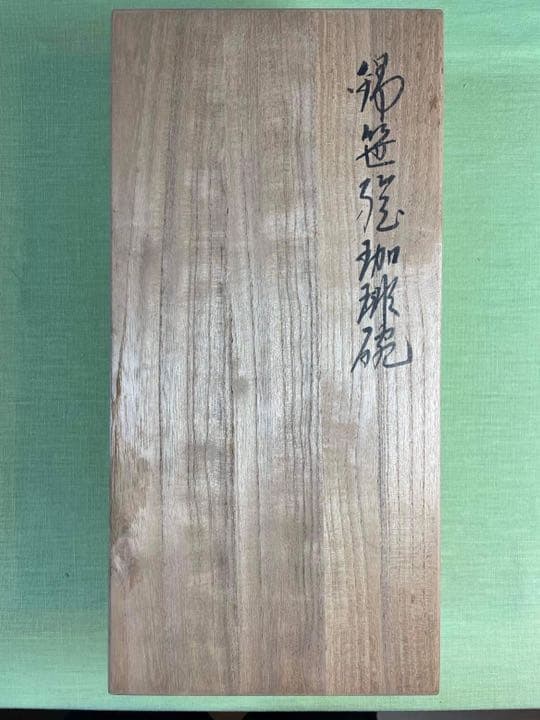 錫笹絵珈琲碗